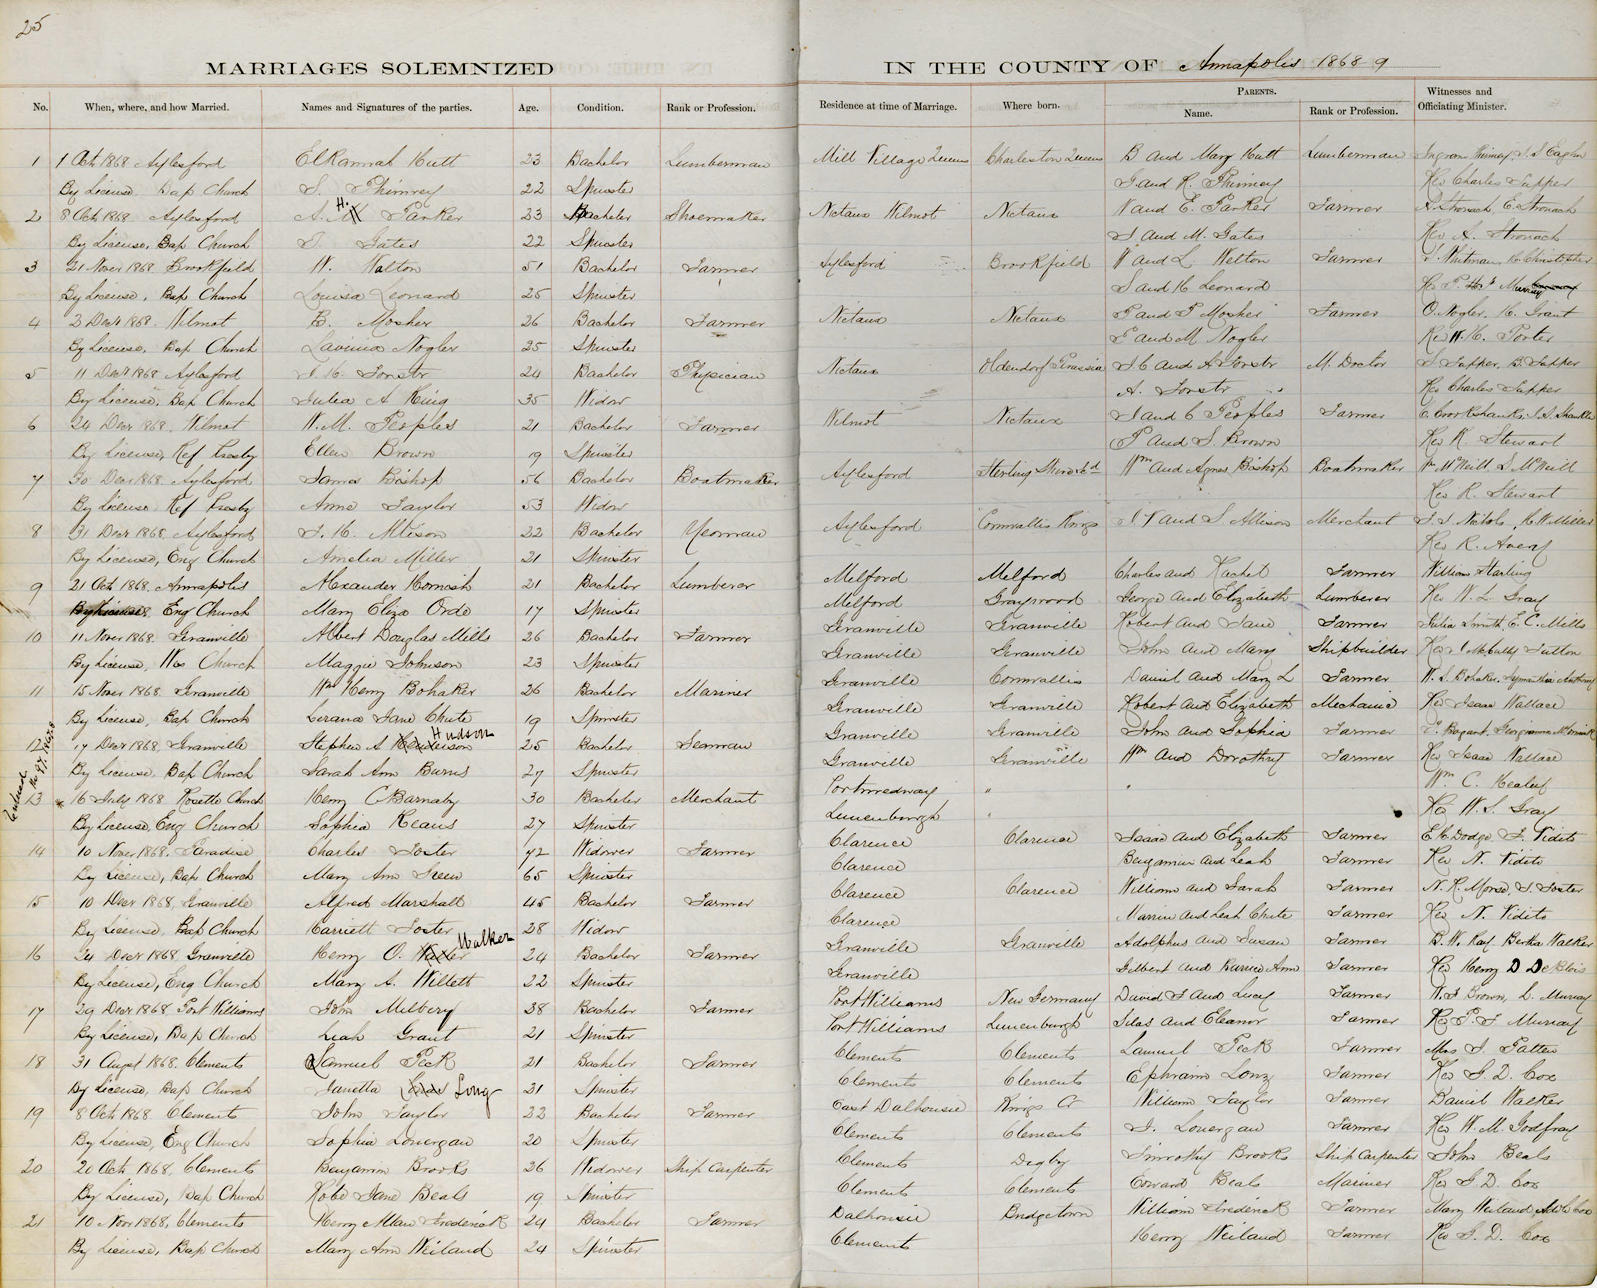 25
MARRIAGES SOLEMNIZED IN THE COUNTY OF Annapolis 1868-9
No. When, where, and how Married. Names and Signatures of the parties. Age. Condition. Rank or Profession. Residence at time of Marriage. Where born. PARENTS. Name. Rank or Profession. Witnesses and Officiating Minister.
1 1 Oct 1868 Aylesford Elkannah Hutt 23 Bachelor Lumberman Mill Village Queens Charleston Queens B and Mary Hutt Lumberman
By License Bap Church S. Phinney 22 Spinster J and R. Phinney Rev Charles Tupper
2 8 Oct 1868 Aylesford A. H. Parker 23 Bachelor Shoemaker Nictaux Wilmot Nictaux N and E. Parker Farmer A. Stronach, E. Stronach
By License, Bap Church S. Gates 22 Spinster S and M. Gates Rev A. Stronach
3 21 Novr 1868 Brookfield W. Walton 51 Bachelor Farmer Aylesford Brookfield W and L Welton Farmer Whitman Christopher
By License, Bap Church Louisa Leonard 25 Spinster S and H Leonard Rev P. Murray
4 2 Decr 1868. Wilmot B. Mosher 26 Bachelor Farmer Nictaux Nictaux P and P Mosher Farmer O. Nogler, H. Grant
By License, Bap Church Lavinia Nogler 25 Spinster E and M Nogler Rev W. H. Porter
5 11 Decr 1868 Aylesford Forstr 24 Bachelor Physician Nictaux Oldendorf Prussia and A Forstr M. Doctor S Tupper, B. Tupper
By License, Bap Church Julia A King 35 Widow A. Forstr Rev Charles Tupper
6 24 Decr 1868. Wilmot W. M. Peoples 21 Bachelor Farmer Wilmot Nictaux J and C Peoples Farmer C. Crookshanks,
By License, Ref Presby Ellen Brown 19 Spinster P and S. Brown Rev R. Stewart
7 30 Decr 1868. Aylesford James Bishop 56 Bachelor Boatmaker Aylesford Sterling Wm and Agnes Bishop Boatmaker Wm McNeill S McNeill
By License Ref Presby Anne Taylor 53 Widow Rev R. Stewart
8 31 Decr 1868, Aylesford J. H. Allison 22 Bachelor Yeoman Aylesford Cornwallis Kings and S Allison Merchant Nichols, H. W. Miller
By License, Eng Church Amelia Miller 21 Spinster Rev R. Avery
9 21 Oct 1868. Annapolis Alexander Hornish 21 Bachelor Lumberer Melford Melford Charles and Rachel Farmer William Starling
By License Eng Church Mary Eliza Orde 17 Spinster Melford Graywood George and Elizabeth Lumberer Rev W. L. Gray
10 11 Novr 1868. Granville Albert Douglas Mills 26 Bachelor Farmer Granville Granville Robert and Jane Farmer Julia Smith E. C. Mills
By License, Wes Church Maggie Johnson 23 Spinster Granville Granville John and Mary Shipbuilder Rev J McCully Fulton
11 15 Novr 1868. Granville Wm Henry Bohaker 26 Bachelor Mariner Granville Cornwallis Daniel and Mary L Farmer W. S. Bohaker,
By License, Bap Church Lorana Jane Chute 19 Spinster Granville Granville Robert and Elizabeth Mechanic Rev Isaac Wallace
12 17 Decr 1868, Granville Stephen A Hudson 25 Bachelor Seaman Granville Granville John and Sophia Farmer
By License, Bap Church Sarah Ann Burns 27 Spinster Granville Granville Wm and Dorothy Farmer Rev Isaac Wallace
Entered
13 * 16 July 1868 Rosette Church Henry C Barnaby 30 Bachelor Merchant Portmedway " " Wm. C. Healey
By License, Eng Church Sophia Keans 27 Spinster Lunenburgh " Rev W. S. Gray
14 10 Novr 1868. Paradise Charles Foster 72 Widower Farmer Clarence Clarence Isaac and Elizabeth Farmer E. H. Dodge J. Vidito
By License, Bap Church Mary Ann Green 65 Spinster Clarence Benjamin and Leah Farmer Rev N. Vidito
15 10 Decr 1868, Granville Alfred Marshall 45 Bachelor Farmer Clarence Clarence William and Sarah Farmer N. R. Morse, S. Foster
By License, Bap Church Harriett Foster 28 Widow Clarence and Leah Chute Farmer Rev N. Vidito
16 24 Decr 1868 Granville Henry O. Walker 24 Bachelor Farmer Granville Granville Adolphus and Susan Farmer B. W. Ray, Bertha Walker
By License, Eng Church Mary A. Willett 22 Spinster Granville Gilbert and Ann Farmer Rev Henry D DeBlois
17 29 Decr 1868 Port Williams John Milbery 38 Bachelor Farmer Port Williams New Germany David F and Lucy Farmer W. J Brown, L. Murray
By License, Bap Church Leah Grant 21 Spinster Port Williams Lunenburgh Silas and Eleanor Farmer Rev P. F Murray
18 31 Augst 1868. Clements Samuel Peck 21 Bachelor Farmer Clements Clements Samuel Peck Farmer Mrs J. Patten
By License, Bap Church Janetta Long 21 Spinster Clements Clements Ephraim Long Farmer Rev G. D. Cox
19 8 Oct 1868 Clements John Taylor 22 Bachelor Farmer East Dalhousie Kings Co William Taylor Farmer Daniel Walker
By License, Eng Church Sophia Lonergan 20 Spinster Clements Clements J. Lonergan Farmer Rev W. M. Godfrey
20 20 Oct 1868, Clements Benjamin Brooks 26 Widower Ship Carpenter Clements Digby Timothy Brooks Ship Carpenter John Beals
By License, Bap Church Hobe Jane Beals 19 Spinster Clements Clements Edward Beals Mariner Rev G. D. Cox
21 10 Novr 1868, Clements Henry Allan Frederick 24 Bachelor Farmer Dalhousie Bridgetown William Frederick Farmer Mary Weiland,
By License, Bap Church Mary Ann Weiland 24 Spinster Clements Henry Weiland Farmer Rev G. D. Cox